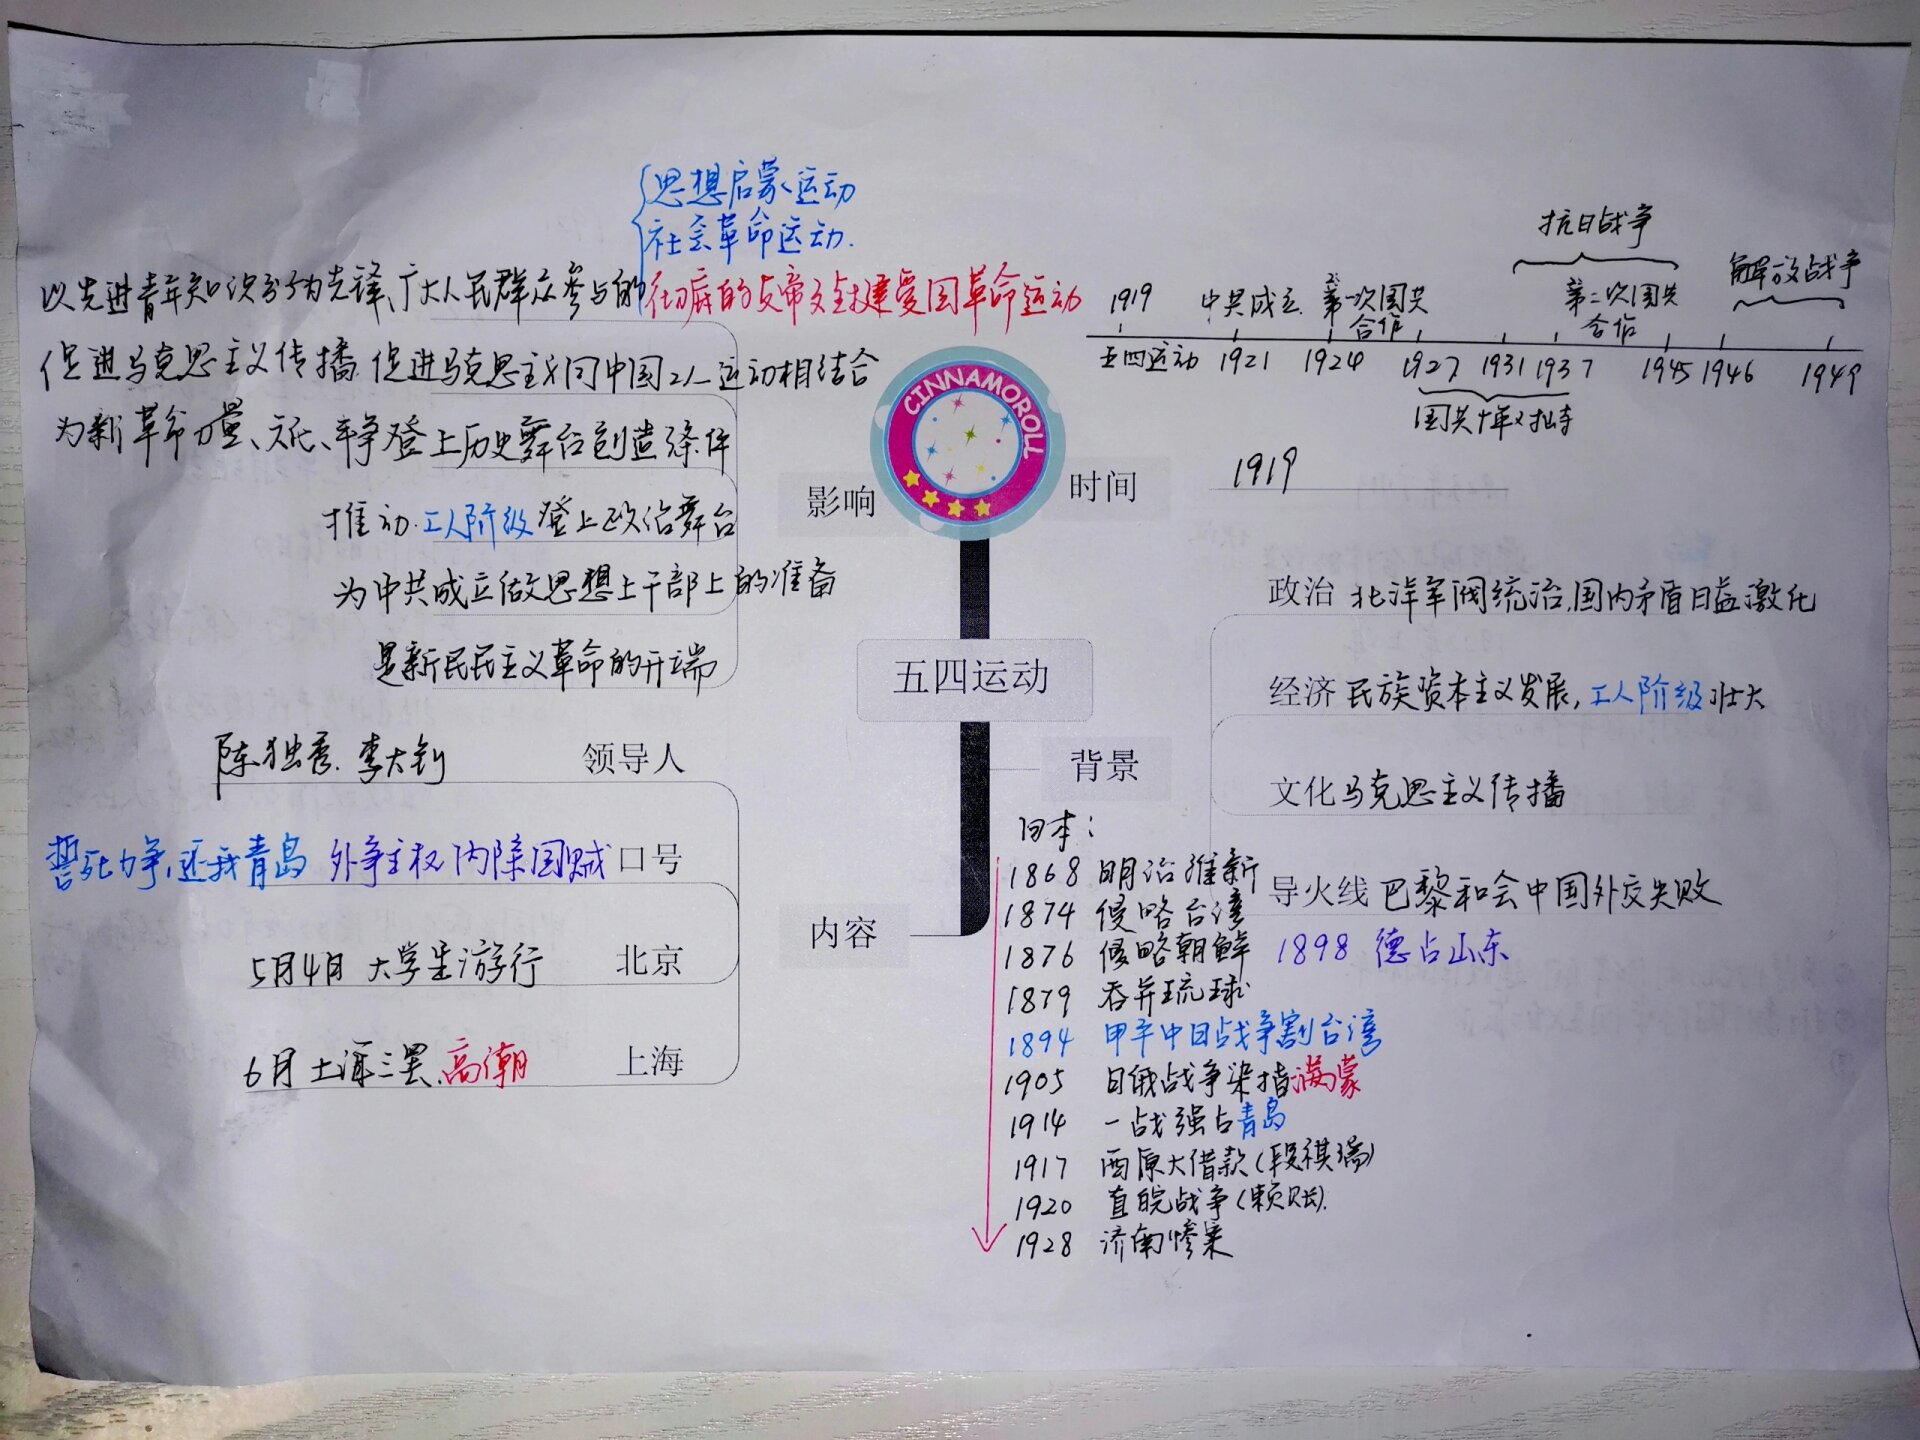 思想启蒙运动
社会革命运动.
以先进青年知识分子为先锋,广大人民群众参与的彻底的反帝反封建爱国革命运动
促进马克思主义传播 促进马克思主义同中国工人运动相结合
为新革命力量、文化、斗争登上历史舞台创造条件
推动工人阶级登上政治舞台
为中共成立做思想上干部上的准备
是新民民主义革命的开端
影响
CINNAMOROLL
抗日战争
解放战争
1919 中共成立 第一次国共合作 第二次国共合作
五四运动 1921 1924 1927 1931 1937 1945 1946 1949
国共十年对峙
时间 1919
五四运动
背景
政治 北洋军阀统治,国内矛盾日益激化
经济 民族资本主义发展,工人阶级壮大
文化 马克思主义传播
导火线 巴黎和会中国外交失败
1898 德占山东
日本:
1868 明治维新
1874 侵略台湾
1876 侵略朝鲜
1879 吞并琉球
1894 甲午中日战争割台湾
1905 日俄战争染指满蒙
1914 一战强占青岛
1917 西原大借款(段祺瑞)
1920 直皖战争(赖账).
1928 济南惨案
内容
陈独秀.李大钊 领导人
誓死力争,还我青岛 外争主权内除国贼 口号
5月4日 大学生游行 北京
6月 上海三罢.高潮 上海